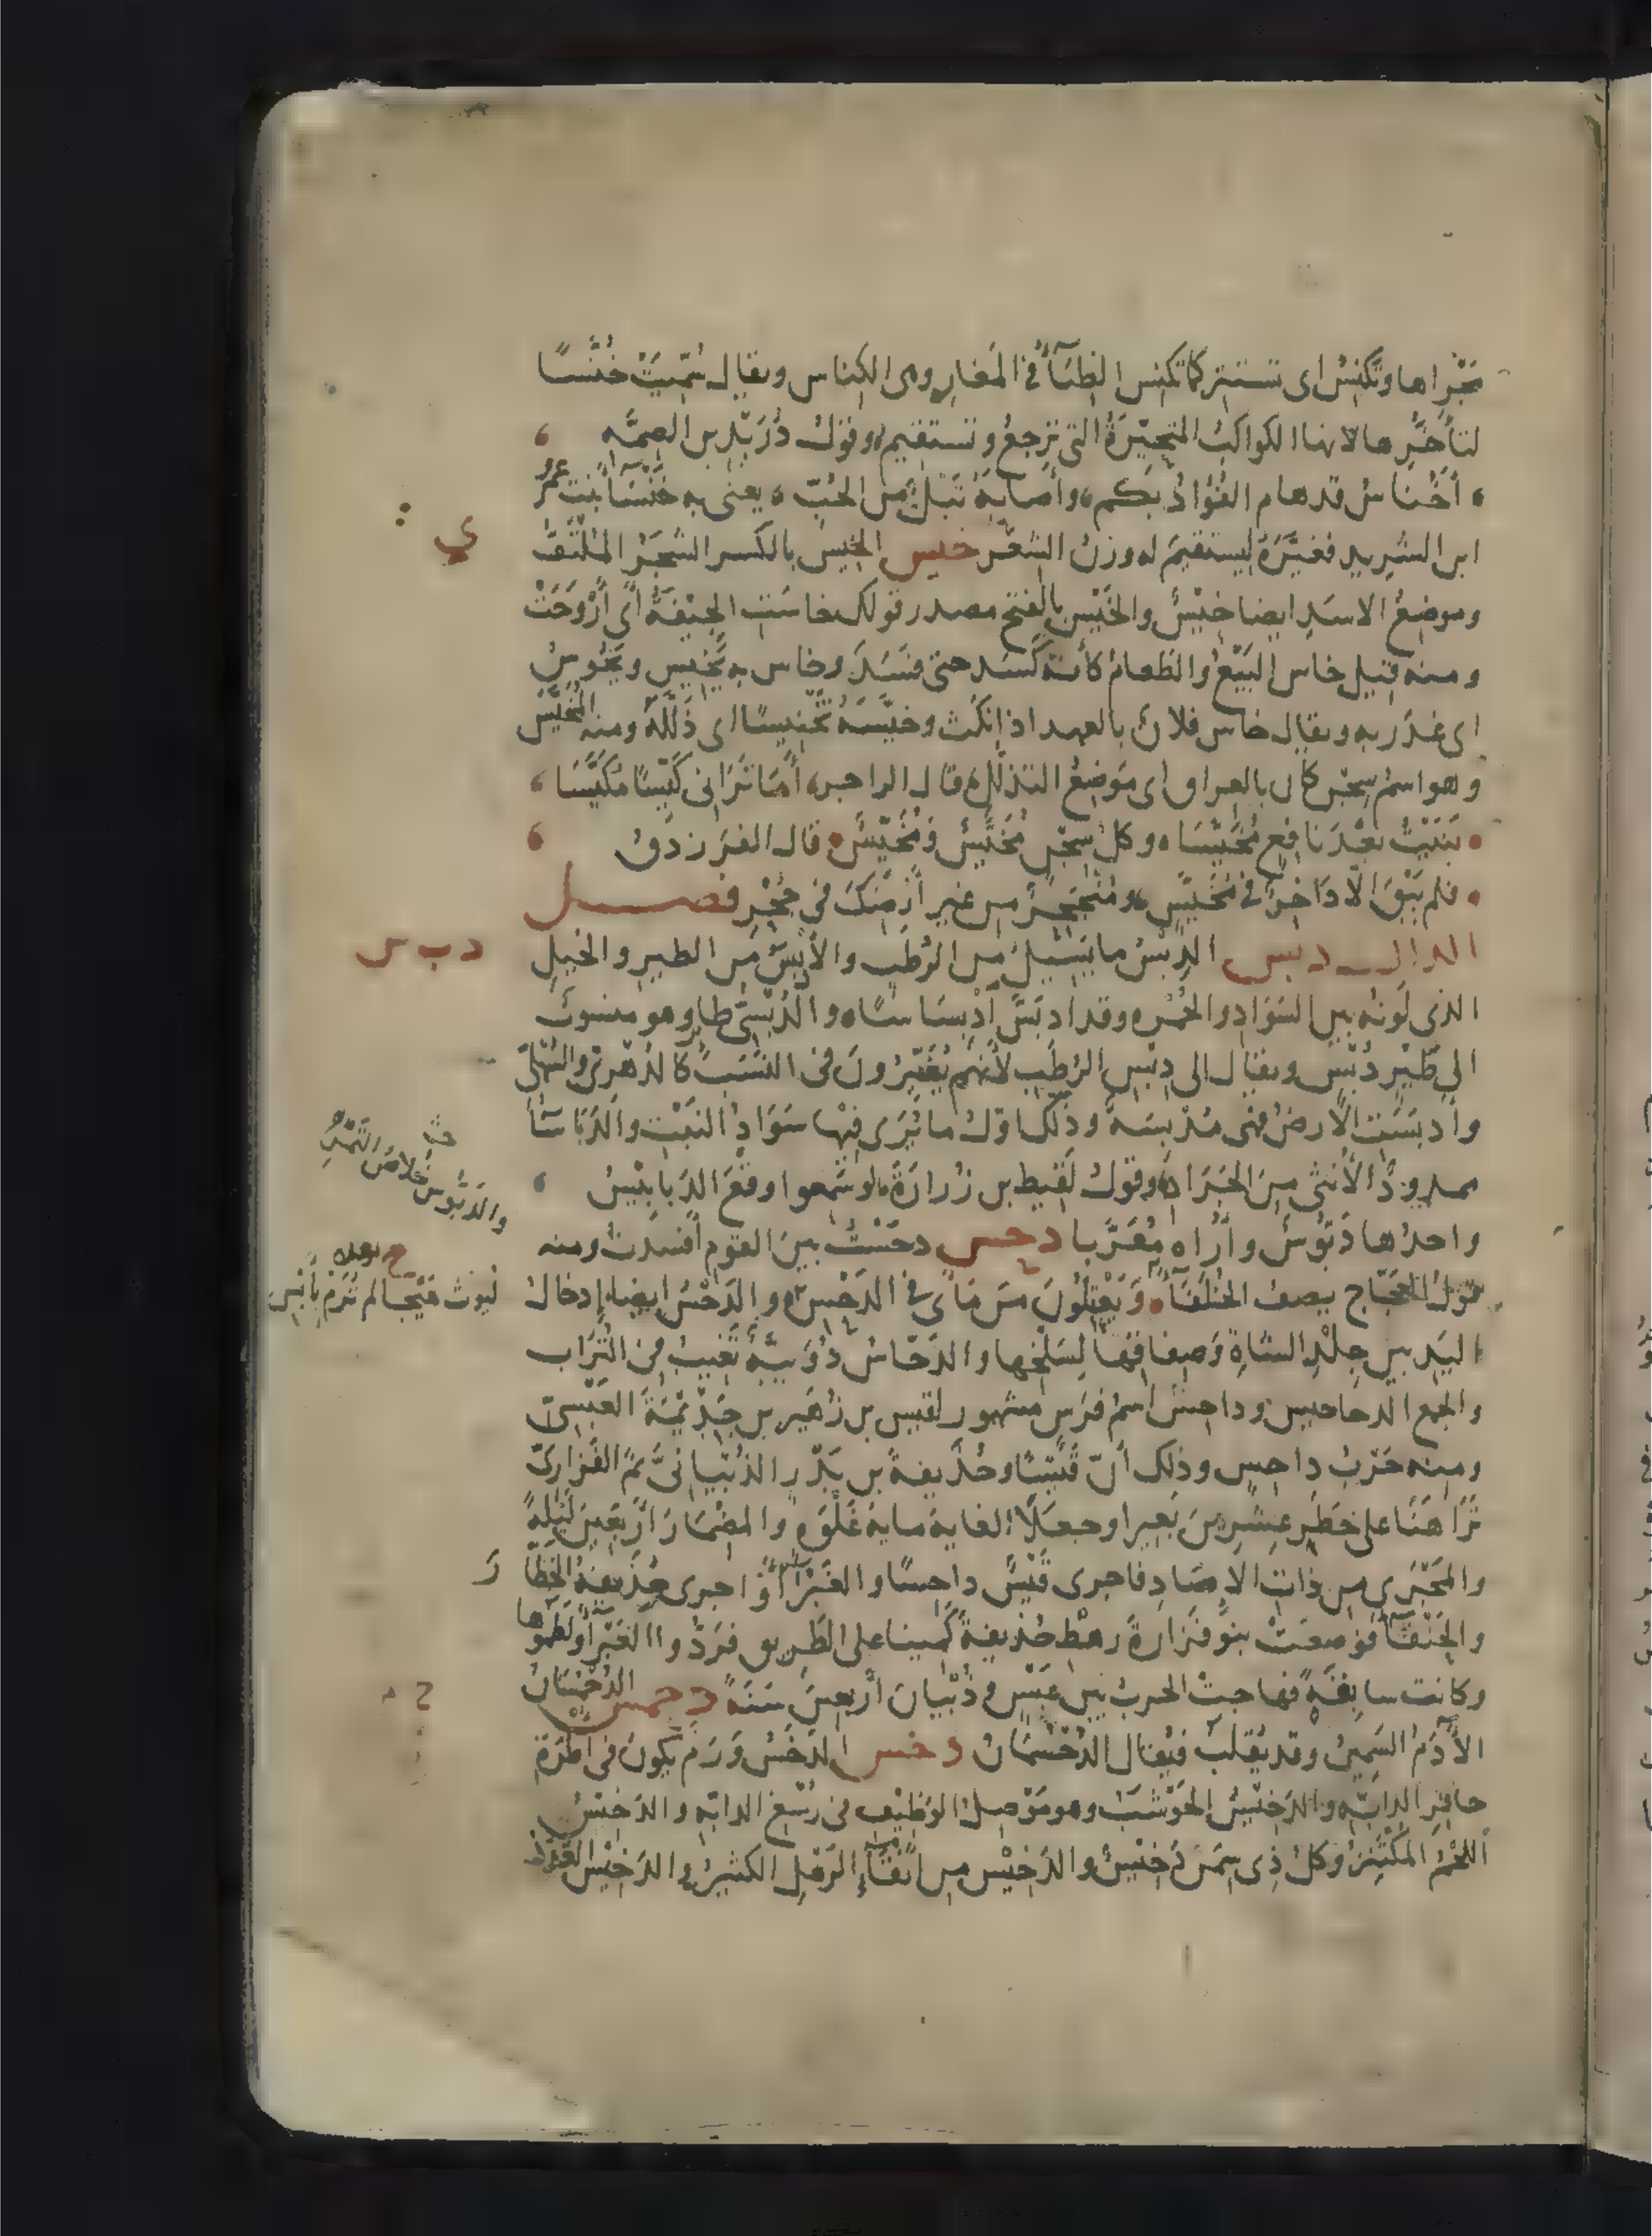 مَجْراها وتَكْنِسُ اى تستتر كما تكنس الظِبَآءُ فى المَغارِ وهى الكِناس ويقال سُمّيَتْ خُنَّسًا
لتأخُّرِها لانها الكواكبُ المتحيّرَةُ التى ترجعُ وتستقيم وقول دُرَيْد بن الصِمَّه
أَخُناسُ قدهام الفُؤادُ بكم وأصابهُ تَبْلٌ من الحُبّ يعنى به خَنْسَآ بنت عمرو
ابن الشريد فغيَّرَهُ ليستقيمَ له وزنُ الشعر خيس الخِيسُ بالكسر الشجَرُ المُلْتَفُّ
ى
وموضعُ الاسَدِ ايضا خِيْسٌ والخَيْسُ بالفتح مصدر قولك خاسَت الجِيْفَةُ اى أَرْوَحَتْ
ومنه قيل خاس البَيْعُ والطعامُ كأنه كَسَد حتى فسَدَ وخاس به يَخِيس ويَخُوسُ
اى غدَر به ويقال خاس فلانٌ بالعهد اذا نكَث وخيَّسَهُ تَخْيِيسًا اى ذَلَّلَهُ ومنه المُخَيَّسُ
وهو اسمُ سِجْن كان بالعراق اى مَوْضِعُ التذلّل قال الراجز أَمَا تَرانى كَيِّسًا مُكَيَّسَا
بَنَيْتُ بعْدَ نافِعٍ مُخَيَّسَا وكلُّ سِجْنٍ مُخَيَّسٌ ومُخَيِّسٌ قال الفرزدق
فلم يَبْقَ الّا دَاخِرٌ فى مُخَيَّسٍ ومُنْجَحِرٌ من غير أَرْضِكَ فى جُحْرِ فصل
الدال دبس الدِبْسُ ما يَسِيلُ من الرُطَب والأدْبَسُ مِن الطير والخيل
د ب س
الذى لَونُه بين السَوَادِ والحُمْره وقد ادبَسَّ ادْبِسَاسًا والدُبْسِىُّ طاير وهو منسوب
الى طَيْرٍ دُبْسٍ ويقال الى دِبْسِ الرُطَبِ لأنهم يُغَيِّرُونَ فى النَسَب كالدُهْرِىّ والسُهْلِىّ
وأدبَسَتِ الأرضُ فهى مُدْبِسَةٌ وذلك اوّل ما يُرَى فيها سَوَادُ النَبْت والدَبَاسَآءُ
ممدودٌ الأنثى مِنَ الجَرَادِ وقول لَقيط بن زُرارَةَ لو سَمعوا وقْعَ الدَبابِيْسُ
والدَبُّوس خُلاصُ التَمْرِ
واحدُها دَبُّوسٌ وأُراه مُعَرَّبا دحس دحَسْتُ بين القوم أفسدتُ ومنه
قول العَجّاج يصف الخُلَفَآءَ وَيَعْتِلُونَ مَن مَأى فى الدَحْس والدَحْسُ ايضا إدخالُ
اليَدِ بين جِلْدِ الشاةِ وَصِفاقِها لِسَلْخِها والدَحّاسُ دُوَيْبَّةٌ تَغيبُ فى التُرَاب
والجمع الدحاحيس وداحسٌ اسمُ فَرَسٍ مشهور لقيس بن زُهَيْر بن جَذِيْمَةَ العَبْسِىّ
ومنه حَرْبُ داحِسٍ وذلك أنّ قَيْسًا وحُذَيفةَ بن بَدْرٍ الذُبْيانىَّ ثمّ الفَزارِىَّ
تَرَاهَنَا على خَطَرِ عِشرِينَ بَعِيرا وجعَلَا الغايةَ ماية غَلْوَةٍ والمِضْمَارَ أَرْبَعِينَ لَيْلةً
والمَجْرَى من ذاتِ الإِصَادِ فاجرى قَيْسٌ داحِسًا والغَبْرَآءَ واجرى حُذَيفةُ الخَطَّارَ
والحَنْفَآءَ فوضعَتْ بنو فَزارةَ رهْطُ حُذيفةَ كَمينا على الطَريق فردُّوا الغَبْرَآءَ ولَطَمُوها
وكانت سابِقَةً فهاجت الحربُ بين عَبْسٍ وذُبْيان أربعينَ سَنَةً دحمس الدُحْمُسَانُ
الآدَمُ السَمِينُ وقد يُقلَب فيُقال الدُحْسُمَانُ دخس الدَخَسُ وَرَمٌ يكونُ فى اطْرَةِ
حافِرِ الدابَّهِ والدَخِيْسُ الحَوْشَبُ وهو مَوْصِلُ الوَظِيْف فى رُسْغ الدابّه والدَخِيْسُ
اللحْمُ المُكْتَنِزُ وكلُّ ذى سِمَنٍ دَخِيْسٌ والدَخِيْس من انْقَآءِ الرَمْلِ الكثيرُ والدَخِيْس العَدَدُ